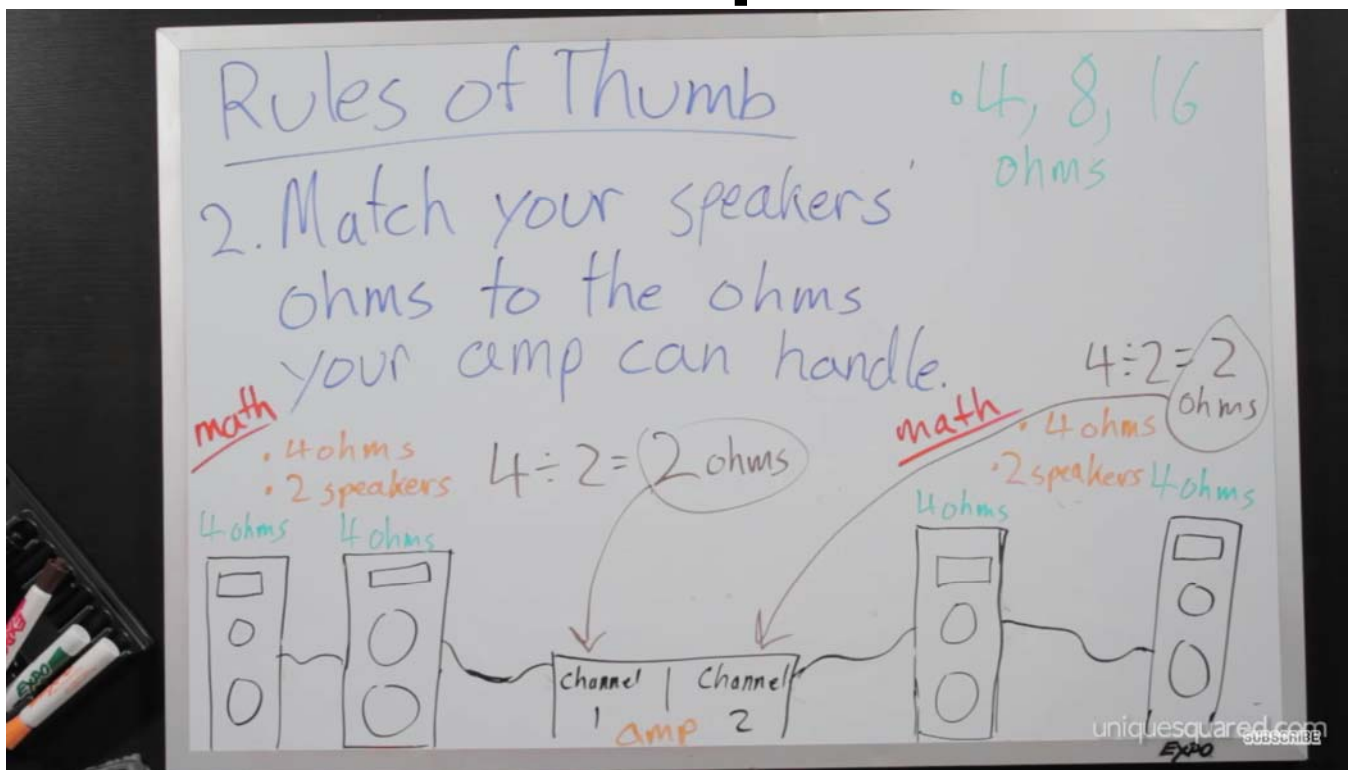 Rules of Thumb
• 4, 8, 16
ohms
2. Match your speakers'
ohms to the ohms
your amp can handle.
4÷2=2
ohms
math
• 4 ohms
• 2 speakers
4÷2= 2 ohms
math
• 4 ohms
• 2 speakers
4 ohms
4 ohms
4 ohms
4 ohms
Channel 1
Channel 2
amp
EXPO
uniquesquared.com
SUBSCRIBE
EXPO